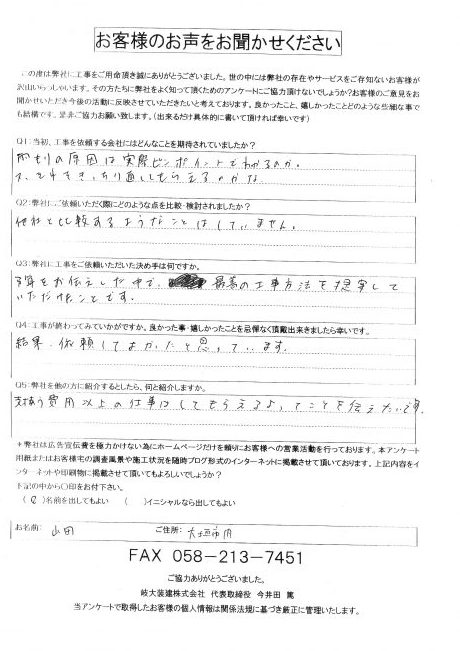 お客様のお声をお聞かせください
この度は弊社に工事をご用命頂き誠にありがとうございました。世の中には弊社の存在やサービスをご存知ないお客様が
沢山いらっしゃいます。その方たちに弊社をよく知って頂くためのアンケートにご協力頂けないでしょうか?お客様のご意見をお
聞かせいただき今後の活動に反映させていただきたいと考えております。良かったこと、嬉しかったことどのような些細な事で
も結構です。是非ご協力お願い致します。(出来るだけ具体的に書いて頂ければ幸いです)
Q1:当初、工事を依頼する会社にはどんなことを期待されていましたか?
雨もりの原因は実際ピンポイントでわかるのか。
それをきっちり直してもらえるのかな
Q2:弊社にご依頼いただく際にどのような点を比較・検討されましたか?
他社と比較するようなことはしていません。
Q3:弊社に工事をご依頼いただいた決め手は何ですか。
をお伝えした中で、最善の工事方法を提案して
いただけたことです。
Q4:工事が終わってみていかがですか。良かった事・嬉しかったことを忌憚なく頂戴出来きましたら幸いです。
結果、依頼してよかったと思っています。
Q5:弊社を他の方に紹介するとしたら、何と紹介しますか。
支払う費用以上の仕事はしてもらえるよ、ってことを伝えたいです。
*弊社は広告宣伝費を極力かけない為にホームページだけを頼りにお客様への営業活動を行っております。本アンケート
用紙またはお客様宅の調査風景や施工状況を随時ブログ形式のインターネットに掲載させて頂いております。上記内容をイ
ンターネットや印刷物に掲載させて頂いてもよろしいでしょうか?
下記の中から〇印をお付下さい。
( )名前を出してもよい ( )イニシャルなら出してもよい
お名前: 山田 ご住所: 大垣市
FAX 058-213-7451
ご協力ありがとうございました。
岐大装建株式会社 代表取締役 今井田 篤
当アンケートで取得したお客様の個人情報は関係法規に基づき厳正に管理いたします。